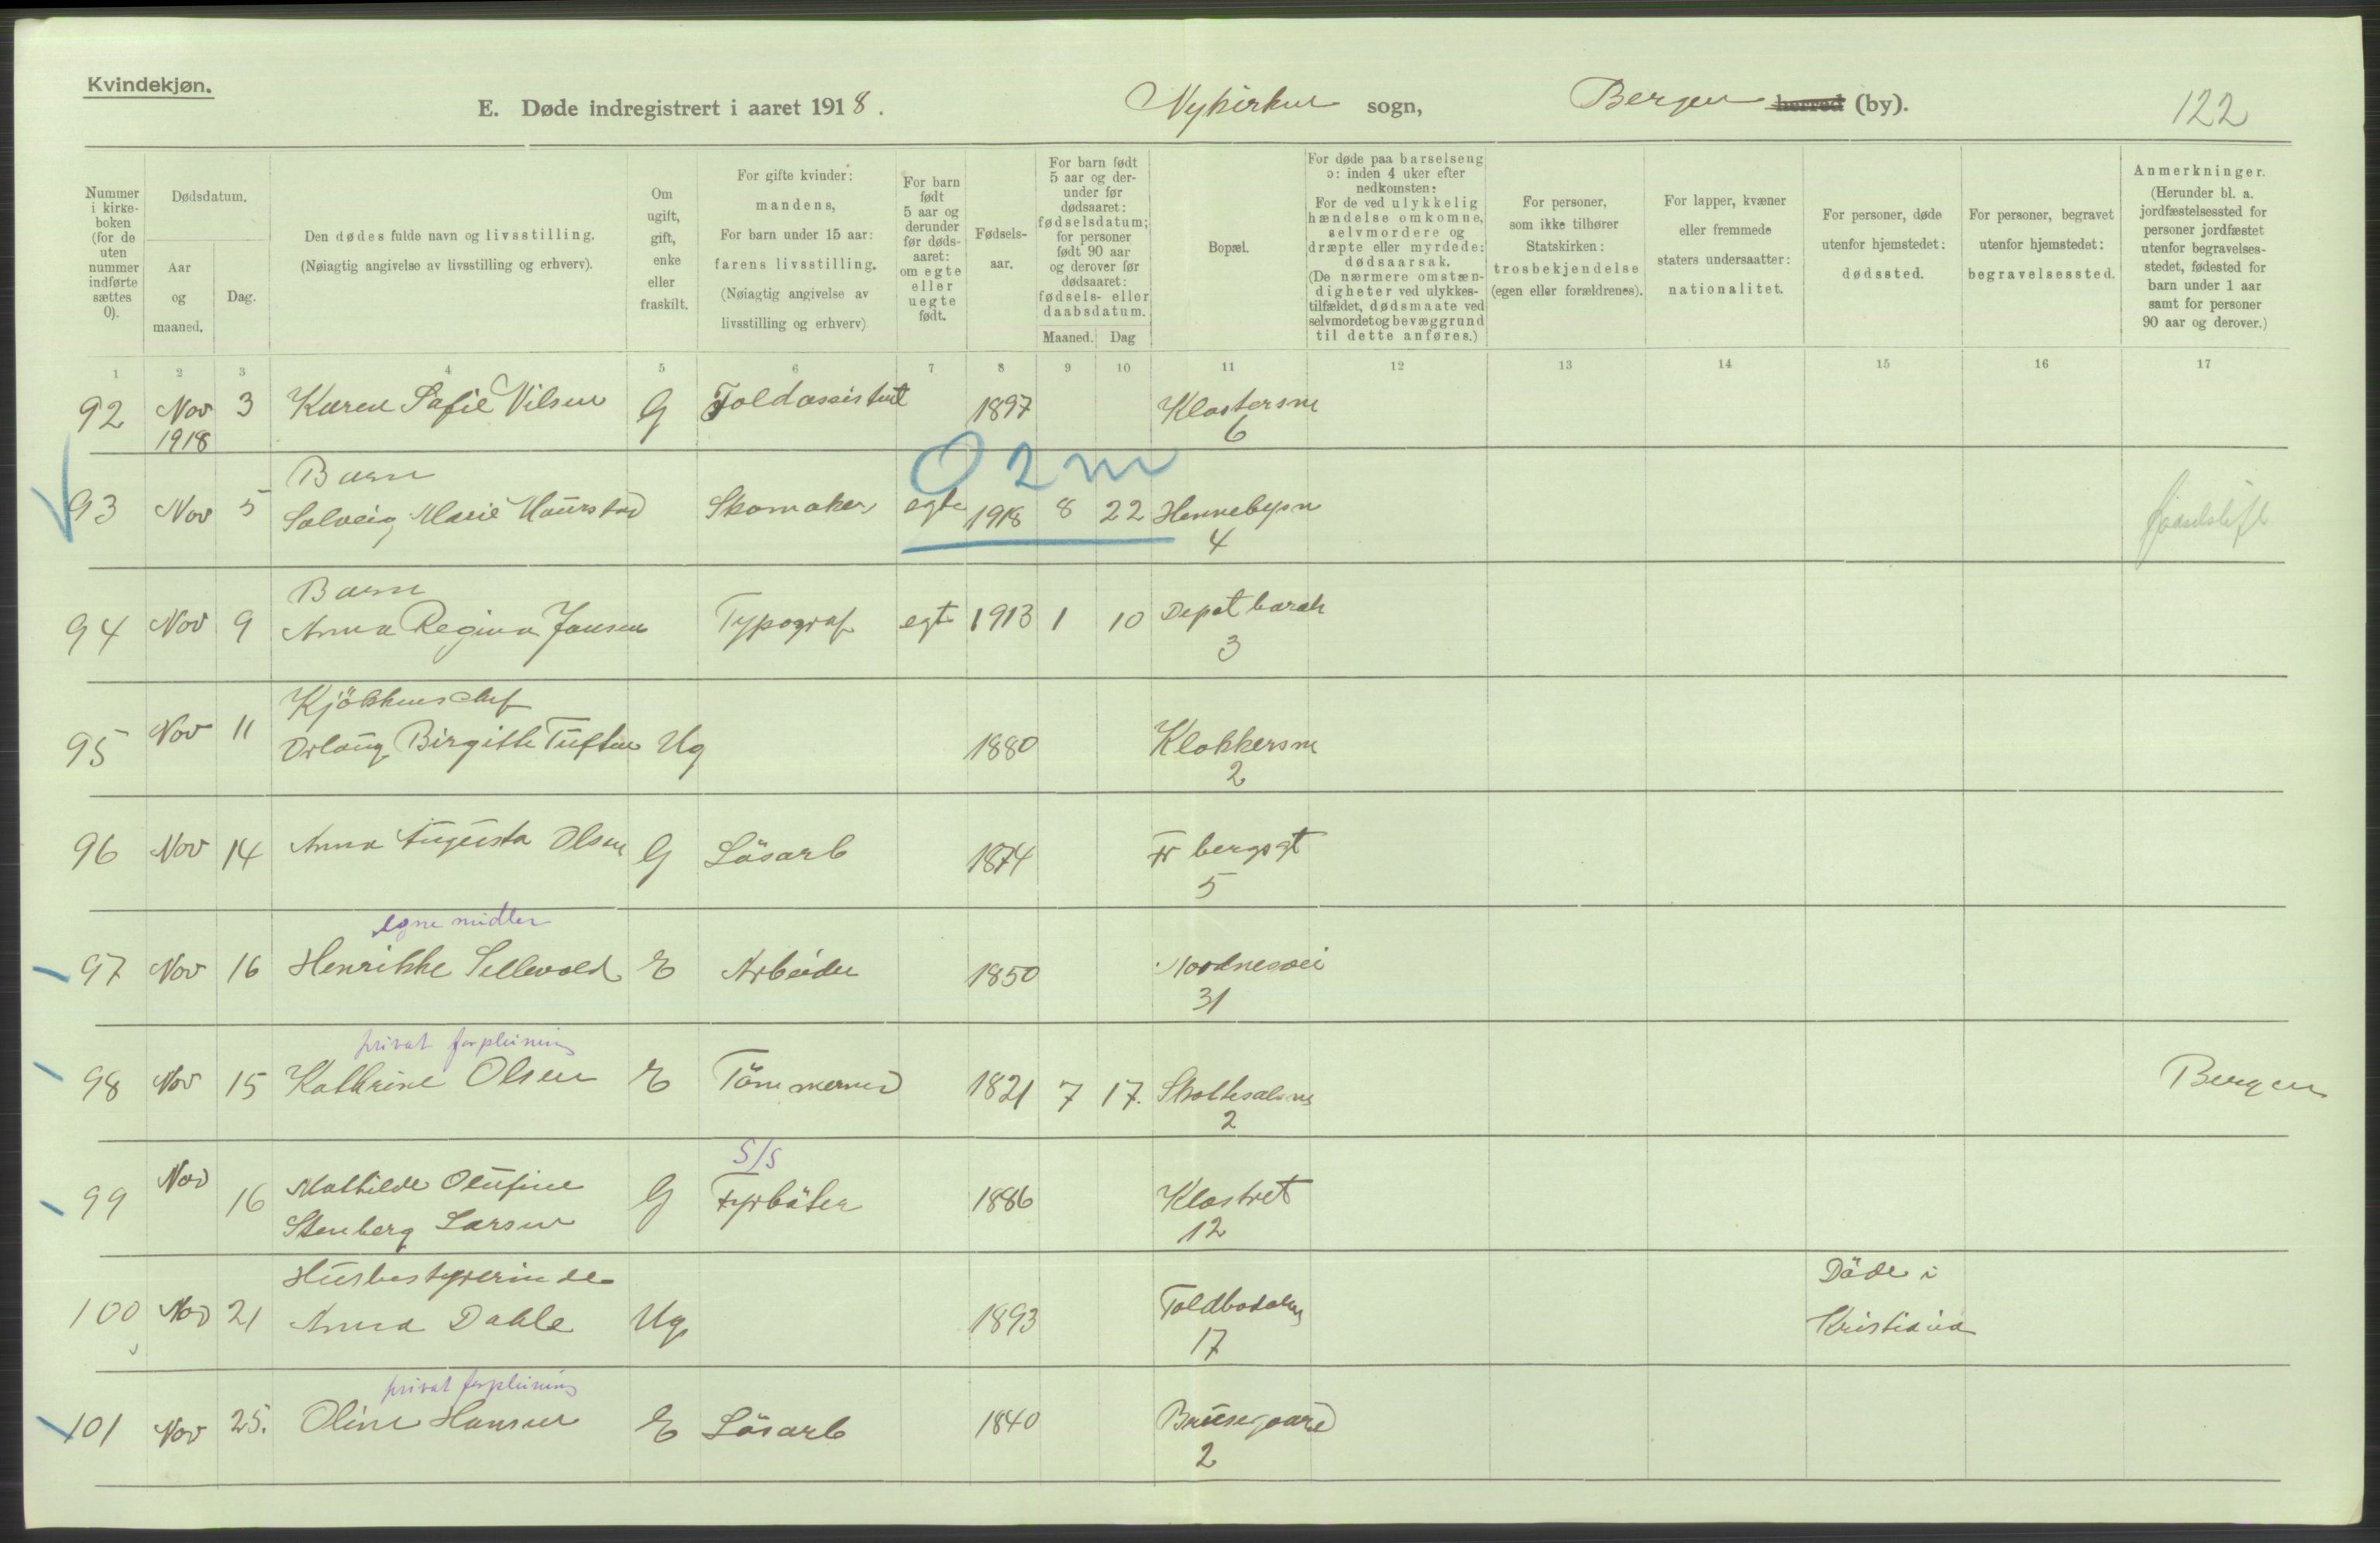 Kvindekjøn.
E. Døde indregistrert i aaret 1918. Nykirken sogn, Bergen herred (by). 122
Nummer i kirkeboken (for de uten nummer indførte sættes 0).
Dødsdatum.
Aar og maaned.
Dag.
Den dødes fulde navn og livsstilling. (Nøiagtig angivelse av livsstilling og erhverv).
Om ugift, gift, enke eller fraskilt.
For gifte kvinder: mandens, For barn under 15 aar: farens livsstilling. (Nøiagtig angivelse av livsstilling og erhverv)
For barn født 5 aar og derunder før dødsaaret: om egte eller uegte født.
Fødselsaar.
For barn født 5 aar og derunder før dødsaaret: fødselsdatum; for personer født 90 aar og derover før dødsaaret: fødsels- eller daabsdatum.
Maaned. Dag
Bopæl.
For døde paa barselseng ɔ: inden 4 uker efter nedkomsten: For de ved ulykkelig hændelse omkomne, selvmordere og dræpte eller myrdede: dødsaarsak. (De nærmere omstændigheter ved ulykkestilfældet, dødsmaate ved selvmordet og bevæggrund til dette anføres.)
For personer, som ikke tilhører Statskirken: trosbekjendelse (egen eller forældrenes).
For lapper, kvæner eller fremmede staters undersaatter: nationalitet.
For personer, døde utenfor hjemstedet: dødssted.
For personer, begravet utenfor hjemstedet: begravelsessted.
Anmerkninger. (Herunder bl. a. jordfæstelsessted for personer jordfæstet utenfor begravelsesstedet, fødested for barn under 1 aar samt for personer 90 aar og derover.)
1 2 3 4 5 6 7 8 9 10 11 12 13 14 15 16 17
92 Nov 3 Karen Sofie Nilsen G Toldassistent 1897 Klostersm
1918 6
O 2 m
Barn
93 Nov 5 Solveig Marie Haurstad Skomaker egte 1918 8 22 Hennebysm
4
Barn
94 Nov 9 Anna Regina Jansen Typograf egte 1913 1 10 Depotbarak
3
Kjökkenschef
95 Nov 11 Orlaug Birgithe Tuften Ug 1880 Klokkersm
2
96 Nov 14 Anna Augusta Olsen G Lösarb 1874 Fr bergsgt
5
egne midler
97 Nov 16 Henrikke Sellevold E Arbeider 1850 Nordnesvei
31
privat forpleining
98 Nov 15 Kathrine Olsen E Tömmermd 1821 7 17. Skottesalsm Bergen
2
S/S
99 Nov 16 Mathilde Olufine G Fyrböter 1886 Klostret
Stenberg Larsen 12
Husbestyrerinde Döde i
100 Nov 21 Anna Dahle Ug 1893 Toldbodalm Kristiania
17
privat forpleining
101 Nov 25. Oline Hansen E Lösarb 1840 Brusegaard
2